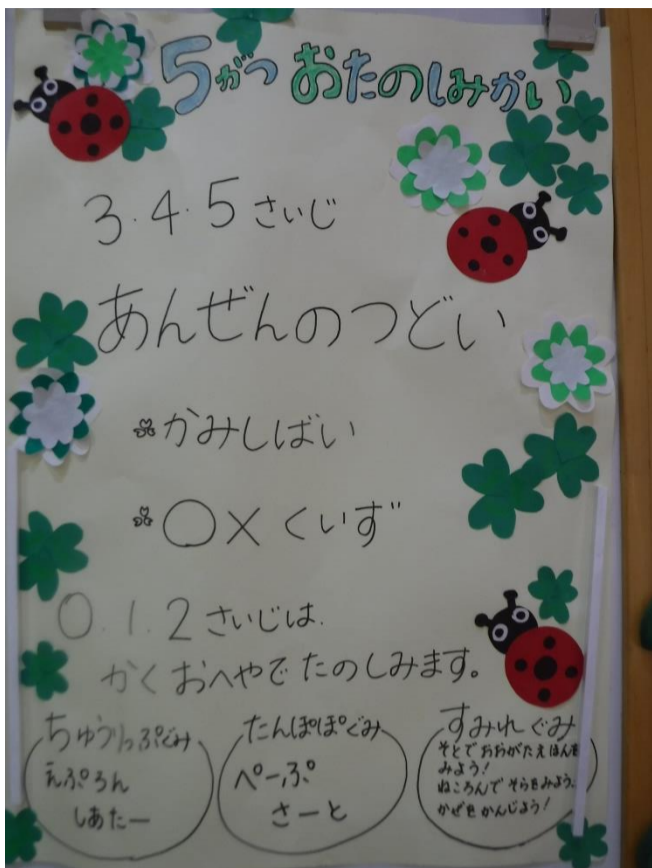 5がつ おたのしみかい
3.4.5さいじ
あんぜんのつどい
かみしばい
○×くいず
0.1.2さいじは.
かくおへやでたのしみます。
ちゅうりっぷぐみ
えぷろん
しあたー
たんぽぽぐみ
ぺーぷ
さーと
すみれぐみ
そとでおおがたえほんを
みよう!
ねころんでそらをみよう、
かぜをかんじよう!